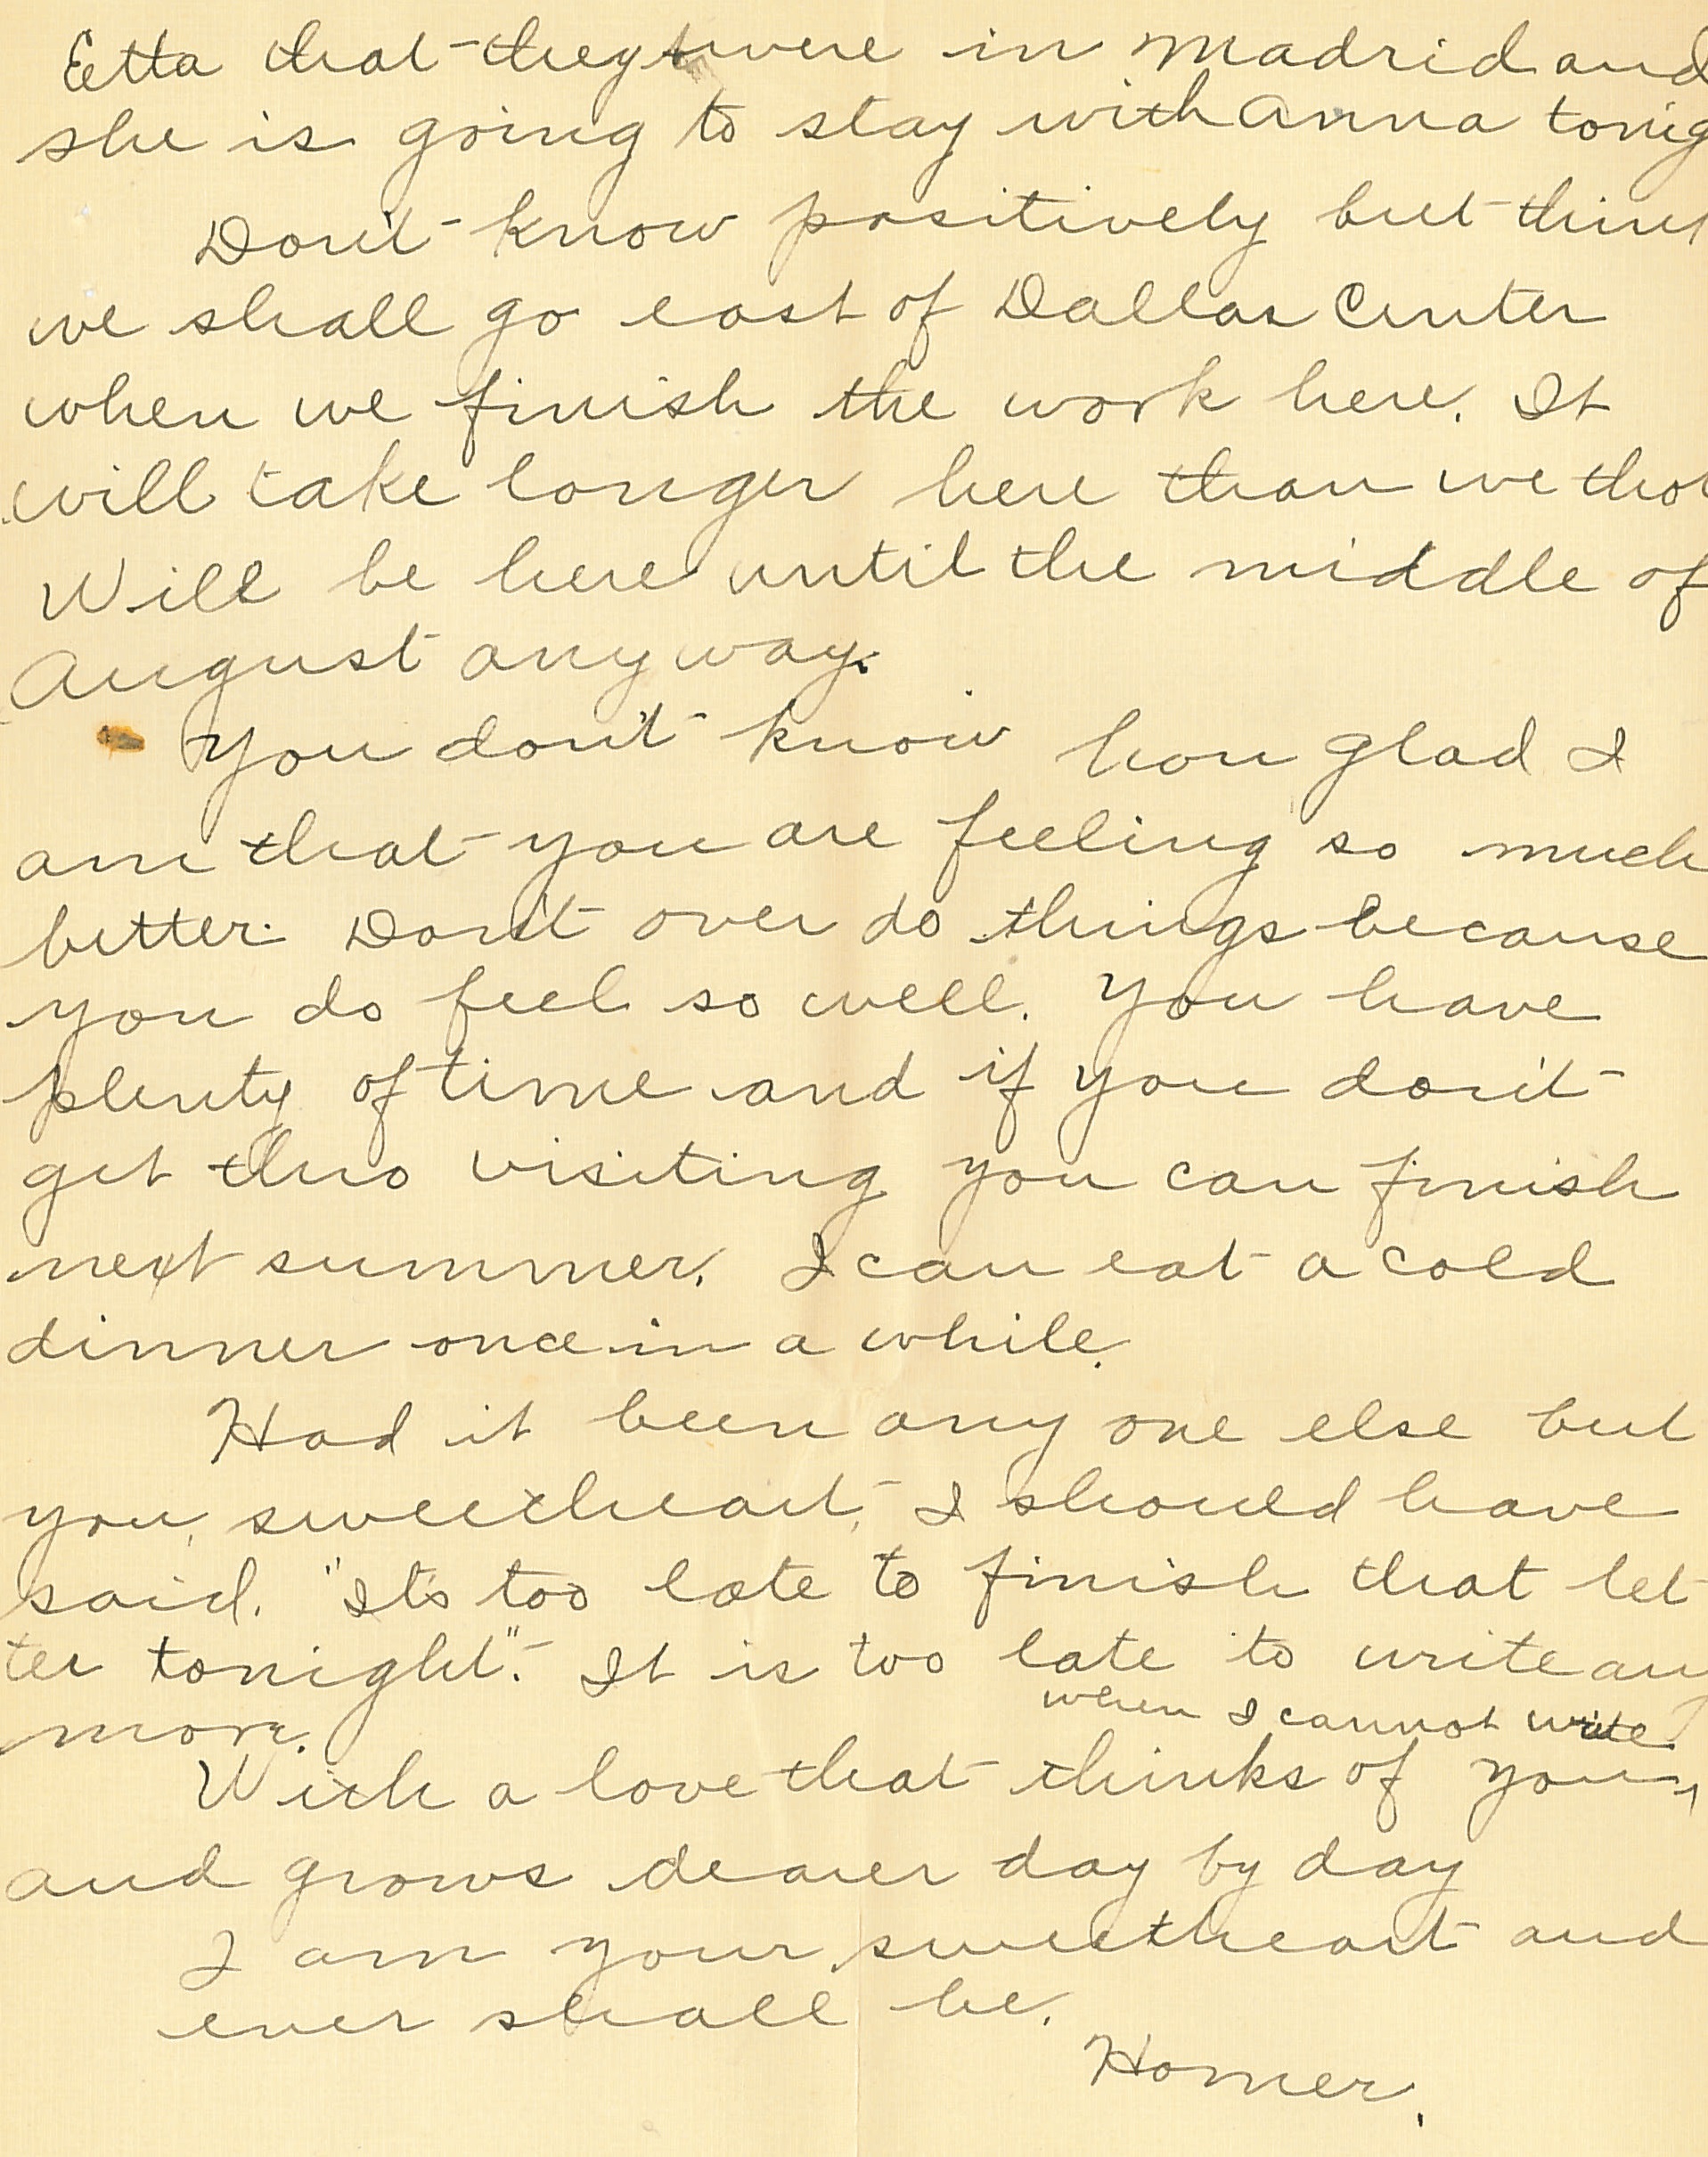 Etta that they were in Madrid and
she is going to stay with Anna tonig
Don't know positively but think
we shall go east of Dallas Center
when we finish the work here. It
will take longer here than we tho
Will be here until the middle of
August anyway.
You don't know how glad I
am that you are feeling so much
better. Don't over do things because
you do feel so well. You have
plenty of time and if you don't
get thro visiting you can finish
next summer. I can eat a cold
dinner once in a while.
Had it been any one else but
you, sweetheart, I should have
said. "It's too late to finish that let
ter tonight". It is too late to write any
more.
when I cannot write
With a love that thinks of you,
and grows dearer day by day
I am your sweetheart and
ever shall be.
Homer.